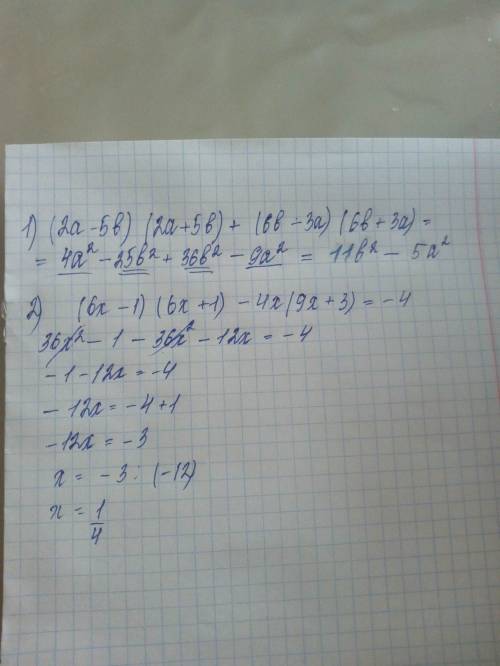 1) (2a - 5b) (2a + 5b) + (6b - 3a) (6b + 3a) =
= 4a² - 25b² + 36b² - 9a² = 11b² - 5a²
2) (6x - 1) (6x + 1) - 4x (9x + 3) = -4
36x² - 1 - 36x² - 12x = -4
-1 - 12x = -4
- 12x = -4 + 1
-12x = -3
x = -3 : (-12)
x = 1/4